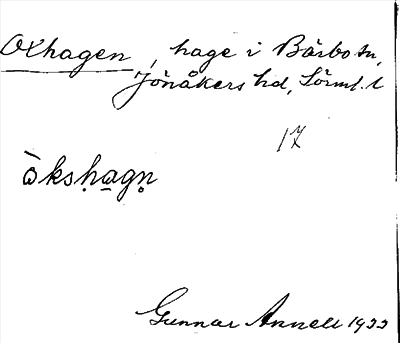 Oxhagen, hage i Bärbo sn,
Jönåkers hd, Sörml. l
17
ò̀ksḥa̲gṇ
Gunnar Annell 1933